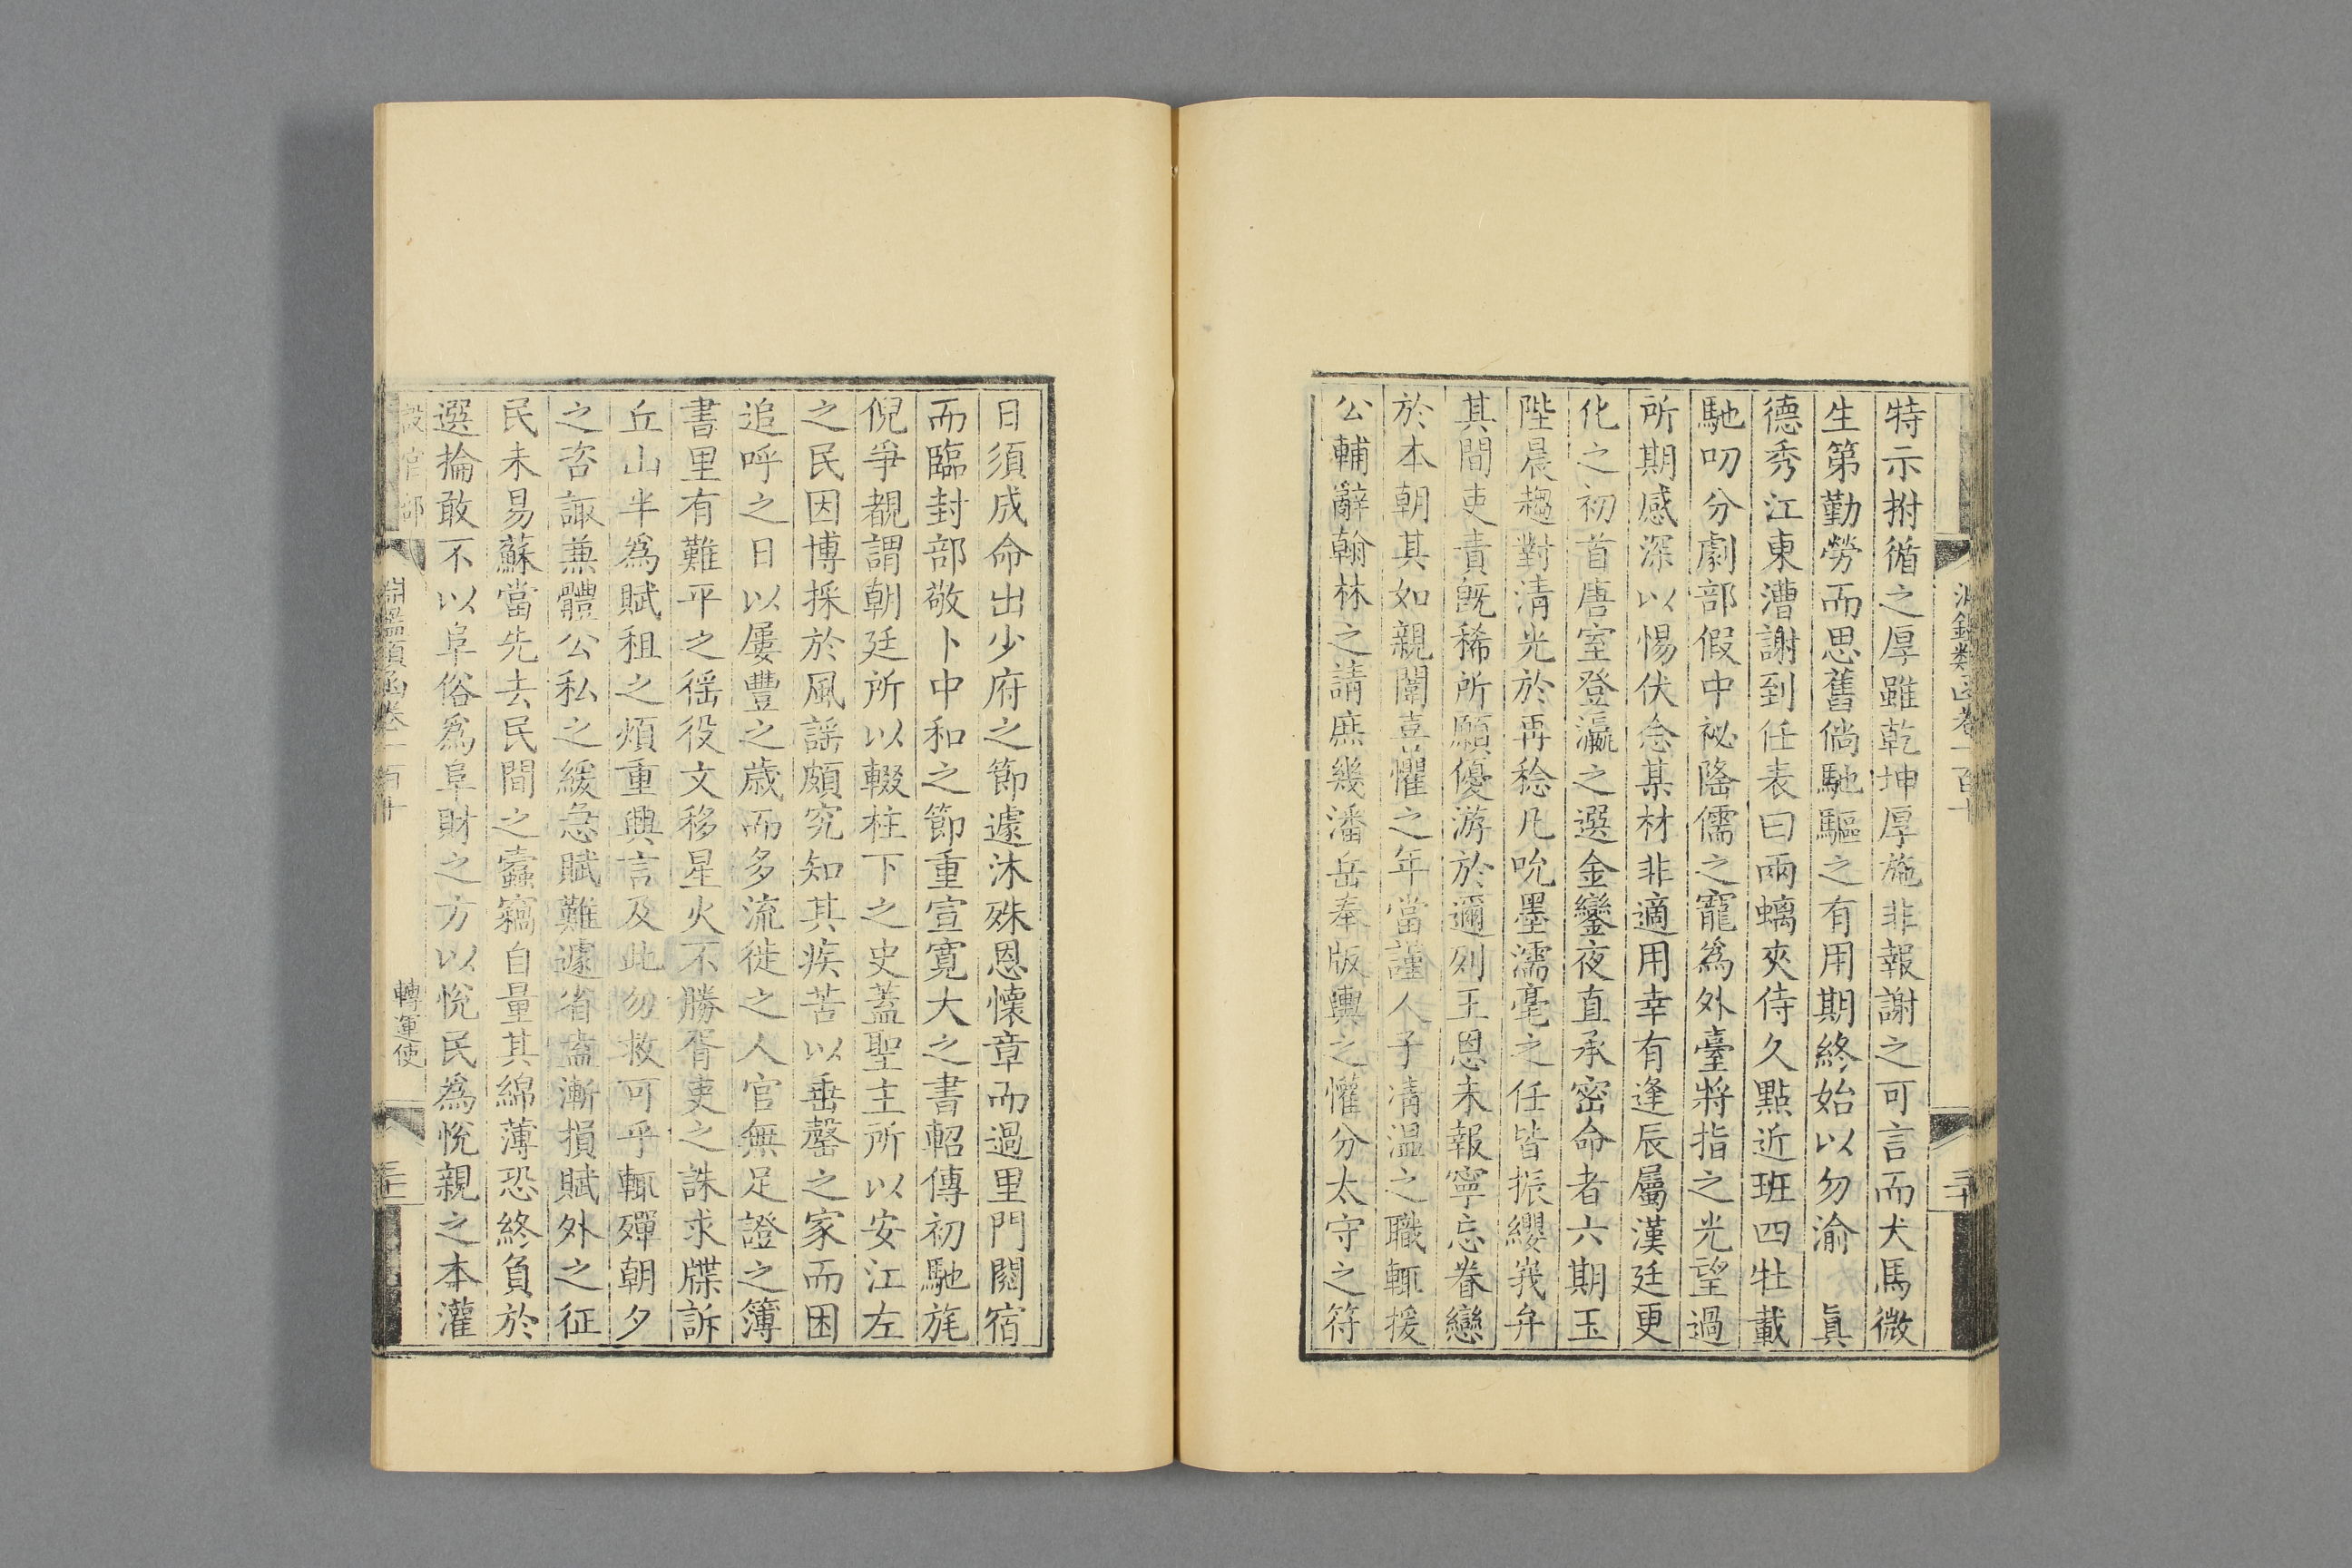 特示拊循之厚雖乾坤厚施非報謝之可言而犬馬微
生第勤勞而思舊倘馳驅之有用期終始以勿渝 眞
德秀江東漕謝到任表曰兩螭夾侍久點近班四牡載
馳叨分劇部假中祕隆儒之寵爲外臺將指之光望過
所期感深以惕伏念某材非適用幸有逢辰屬漢廷更
化之初首唐室登瀛之選金鑾夜直承密命者六期玉
陛晨趨對清光於再稔凡吮墨濡毫之任皆振纓峩弁
其間吏責旣稀所願優游於邇列王恩未報寧忘眷戀
於本朝其如親闈喜懼之年當謹人子凊温之職輒援
公輔辭翰林之請庶幾潘岳奉版輿之懽分太守之符
日須成命出少府之節遽沐殊恩懷章而過里門閱宿
而臨封部敬卜中和之節重宣寛大之書軺傳初馳旄
倪爭覩謂朝廷所以輟柱下之史蓋聖主所以安江左
之民因博採於風謡頗究知其疾苦以垂罄之家而困
追呼之日以屢豐之歳而多流徙之人官無足證之簿
書里有難平之徭役文移星火不勝胥吏之誅求牒訴
丘山半爲賦租之煩重興言及此勿救可乎輒殫朝夕
之咨諏兼體公私之緩急賦難遽省盍漸損賦外之征
民未易蘇當先去民間之蠹竊自量其綿薄恐終負於
選掄敢不以阜俗爲阜財之方以悅民爲悅親之本灌
設官部 淵鑑類函卷一百十 轉運使